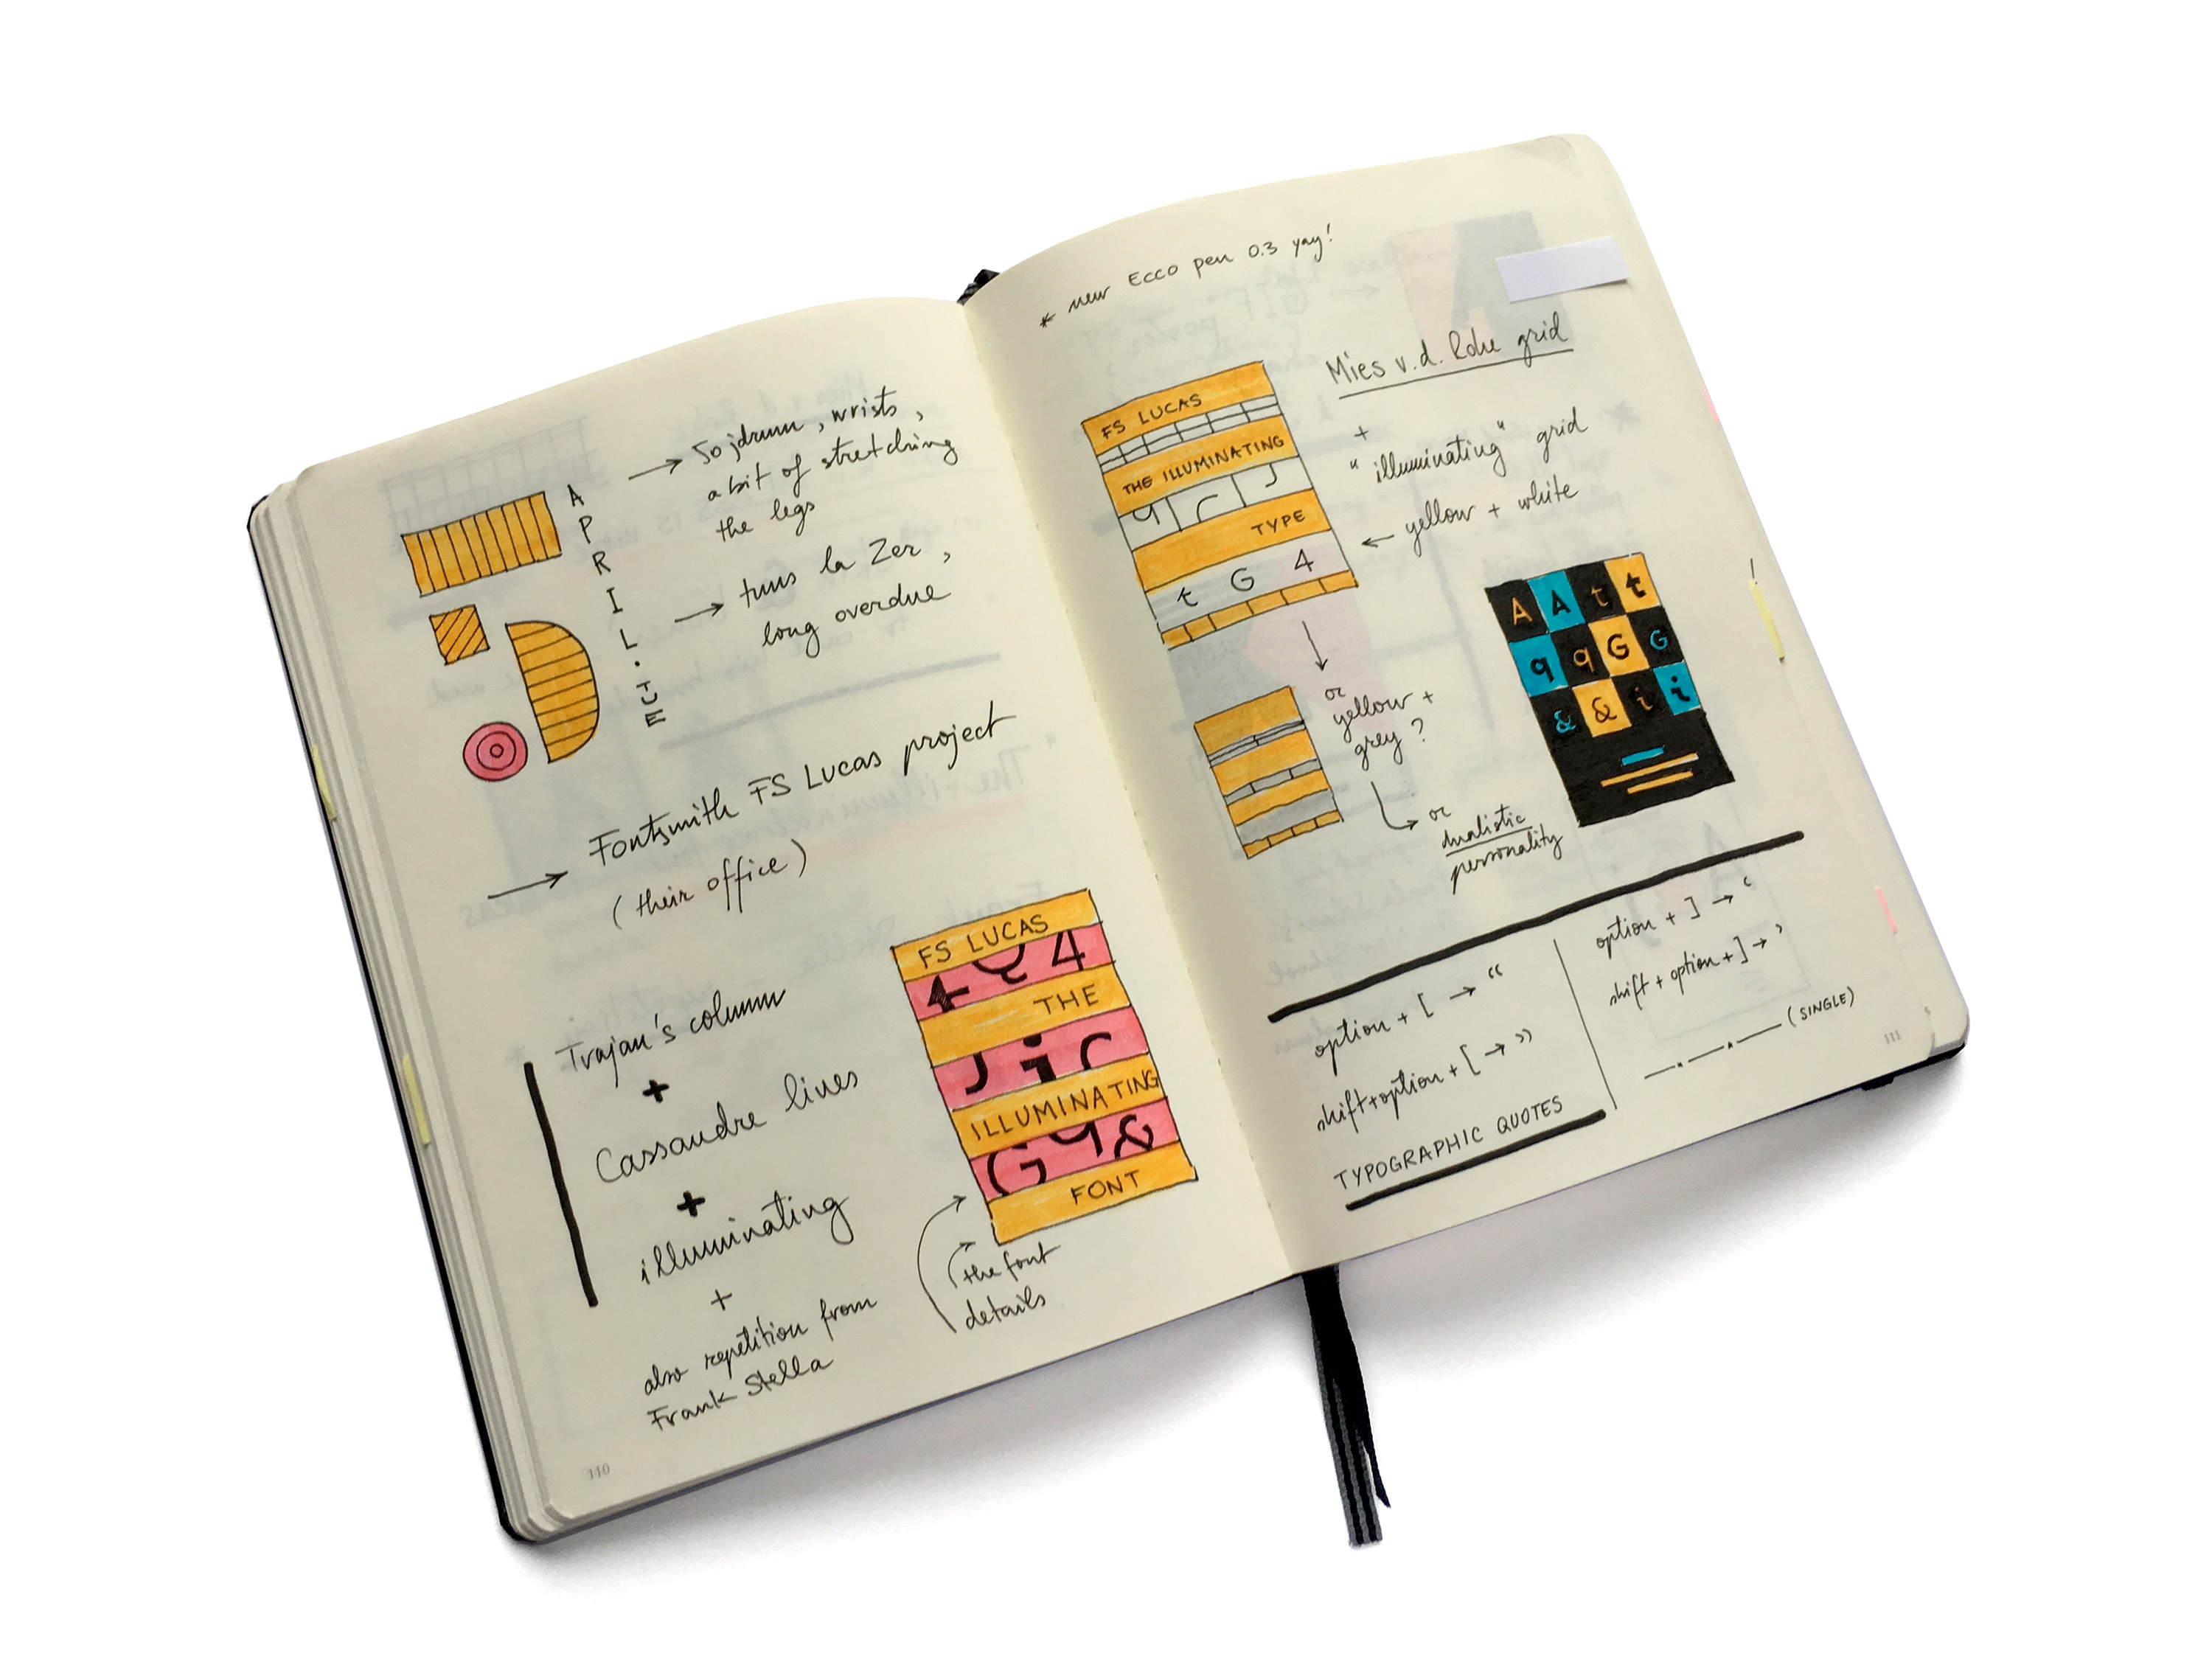 5.
APRIL.TUE
→ 50 jdrumu, wrists,
a bit of stretching
the legs
→ tuns la Zer,
long overdue
→ Fontsmith FS Lucas project
(their office)
Trajan's column
+
Cassandre lines
+
illuminating
+
also repetition from
Frank Stella
FS LUCAS
4 Q 4
THE
J i C
ILLUMINATING
G q &
FONT
the font
details
110
* new Ecco pen 0.3 yay!
Mies v.d. Rohe grid
+
"illuminating" grid
← yellow + white
FS LUCAS
THE ILLUMINATING
TYPE
t G 4
or
yellow +
grey?
or
dualistic
personality
A A t t
q q G G
& & i i
option + [ → “
shift+option + [ → ”
TYPOGRAPHIC QUOTES
option + ] → ‘
shift + option + ] → ’
(SINGLE)
111